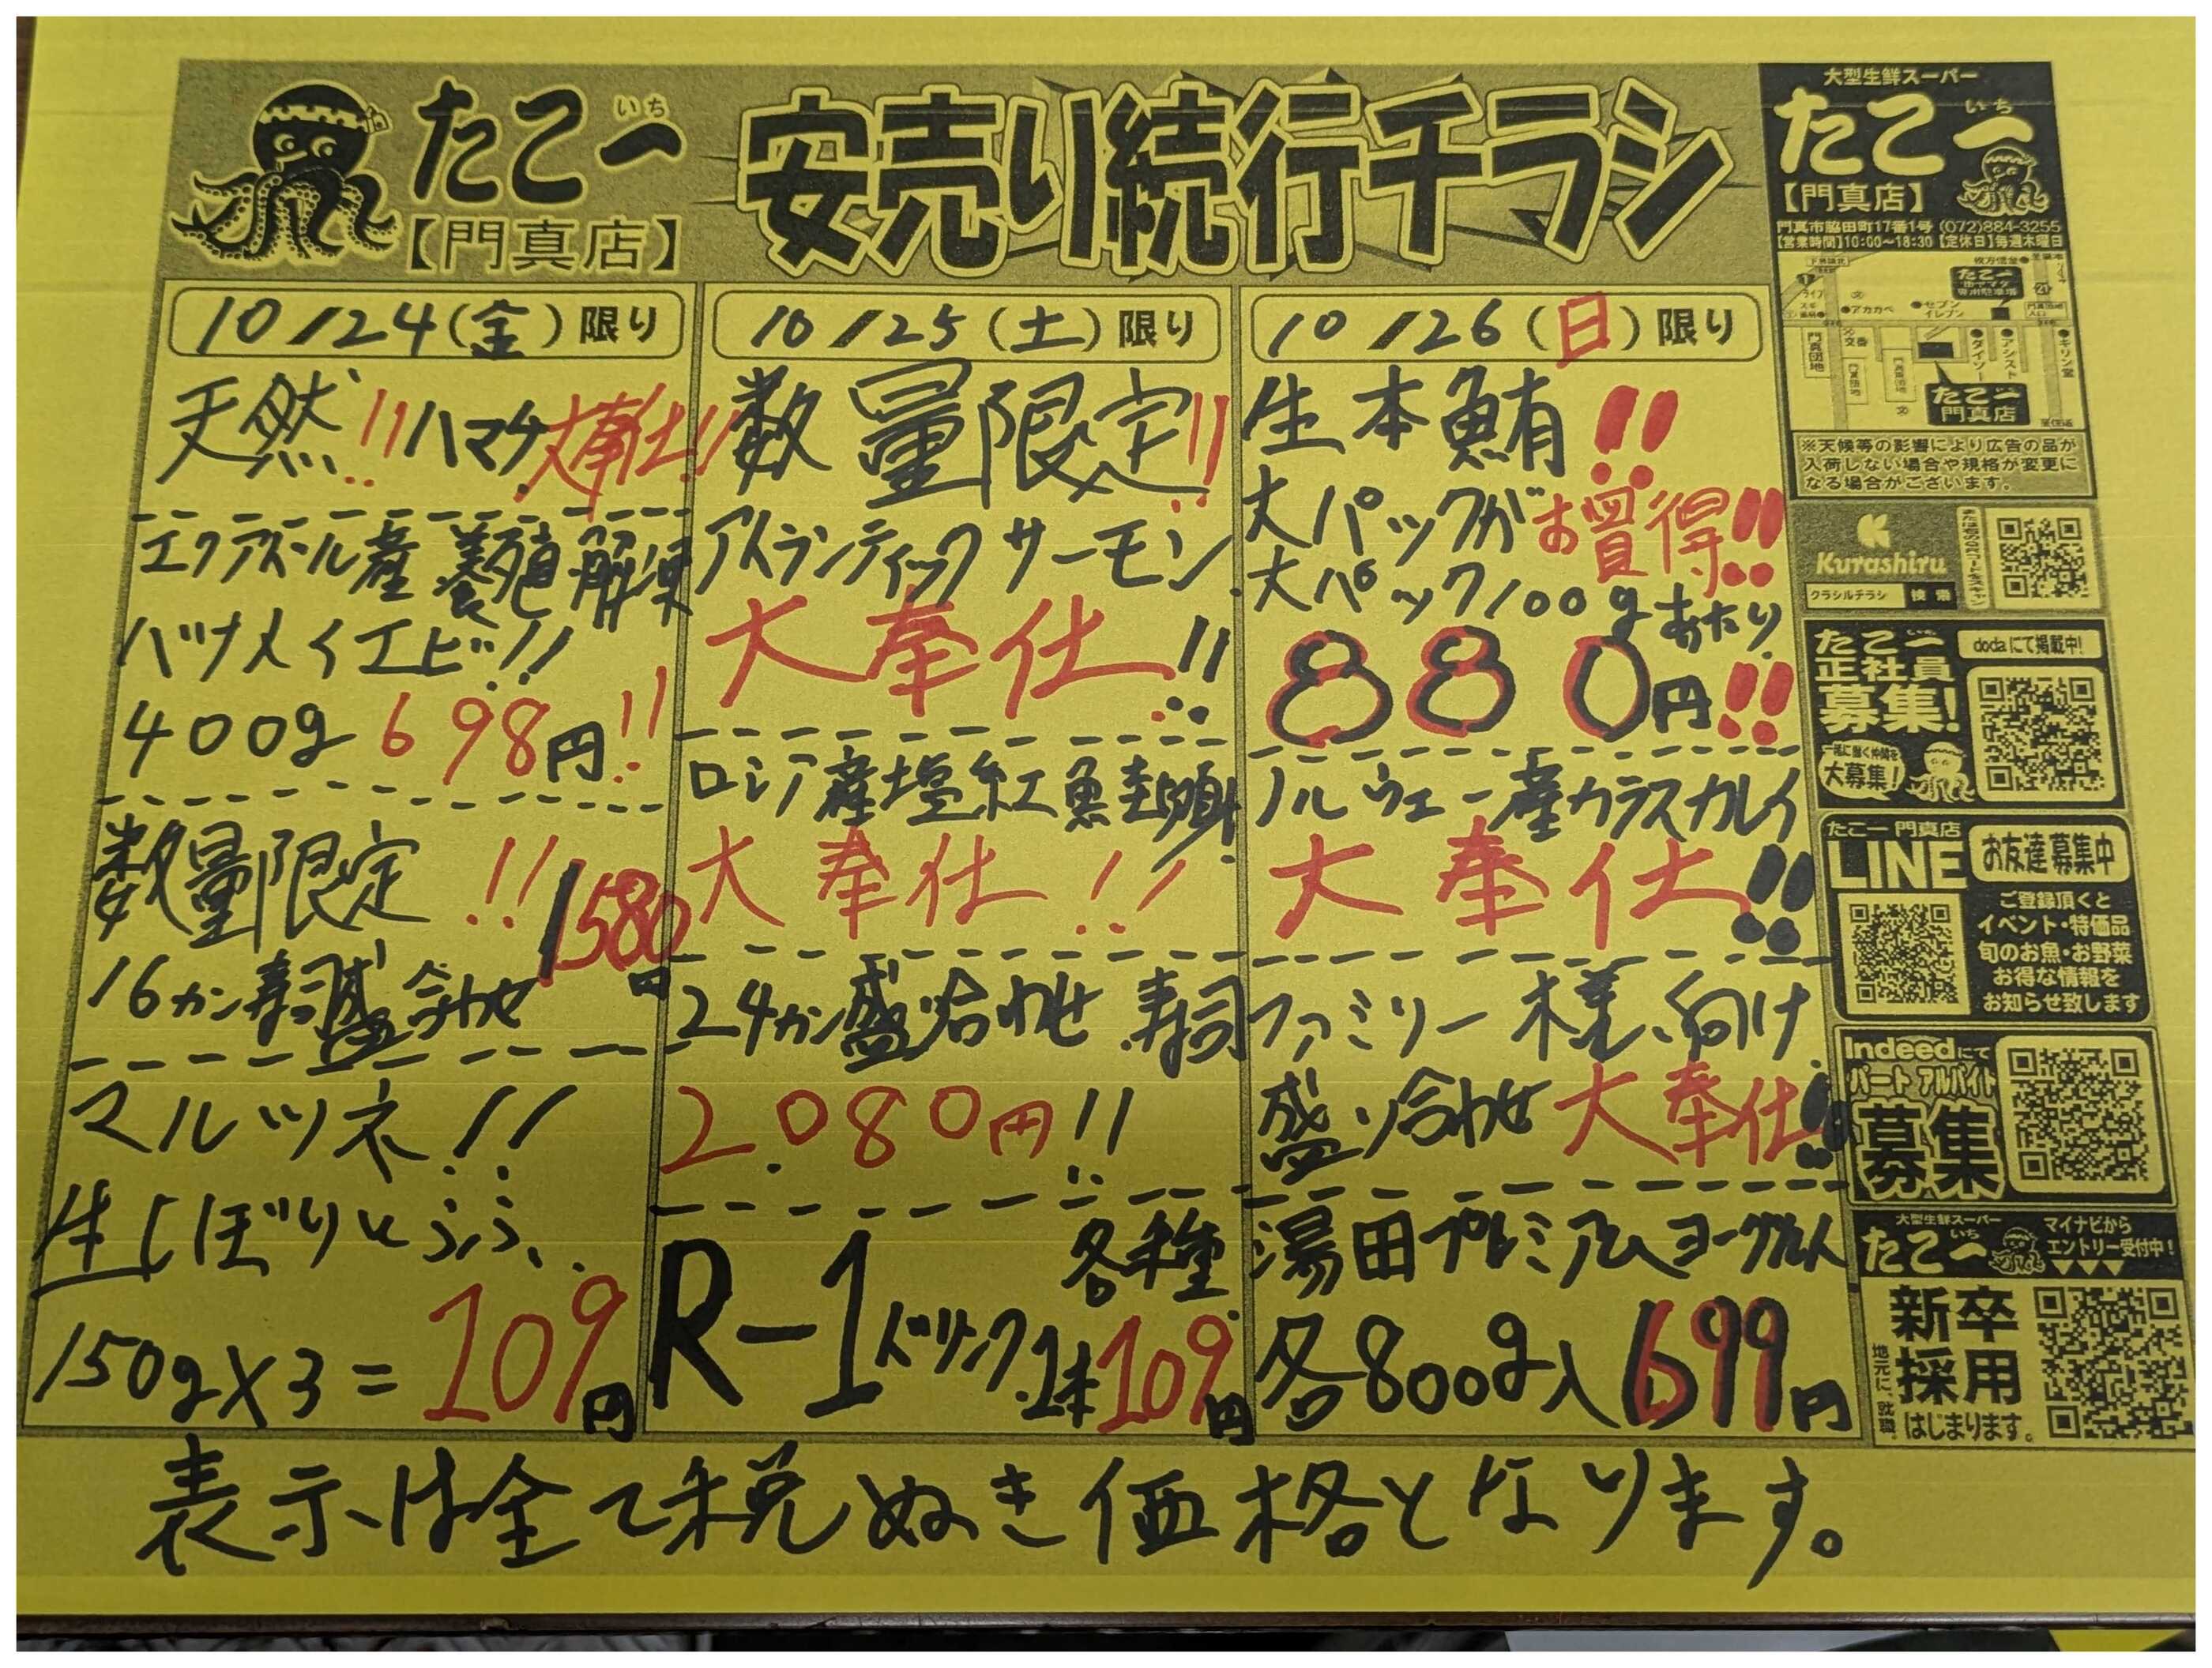 たこ一
いち
【門真店】
安売り続行チラシ
10/24(金)限り
天然!!ハマチ大奉仕!!
エクアドル産 養殖解凍
バナメイエビ!!
400g 698円!!
数量限定!!1580円
16カン寿司盛合わせ
マルツネ!!
生しぼりとうふ、
150g×3=109円
10/25(土)限り
数量限定!!
アトランティックサーモン
大奉仕!!
ロシア産塩紅鮭
大奉仕!!
24カン盛り合わせ寿司
2.080円!!
R-1ドリンク各種
1本109円
10/26(日)限り
生本鮪!!
大パックがお買得!!
大パック100gあたり
880円!!
ノルウェー産カラスカレイ
大奉仕!!
ファミリー様向け
盛り合わせ大奉仕!!
湯田プレミアムヨーグルト
各800g入699円
表示は全て税ぬき価格となります。
大型生鮮スーパー
たこ一
いち
【門真店】
門真市脇田町17番1号 (072)884-3255
【営業時間】10:00〜18:30【定休日】毎週木曜日
ライフ
●アカカベ
●セブンイレブン
●ダイソー
●アシスト
●キリン堂
門真団地
たこ一
門真店
※天候等の影響により広告の品が
入荷しない場合や規格が変更に
なる場合がございます。
Kurashiru
クラシルチラシ 検索
たこ一
正社員
募集!
dodaにて掲載中!
一緒に働く仲間を
大募集!
たこ一 門真店
LINE
お友達募集中
ご登録頂くと
イベント・特価品
旬のお魚・お野菜
お得な情報を
お知らせ致します
Indeedにて
パート アルバイト
募集
大型生鮮スーパー
たこ一
いち
マイナビから
エントリー受付中!
▼▼▼
新卒
採用
はじまります。
地元に就職